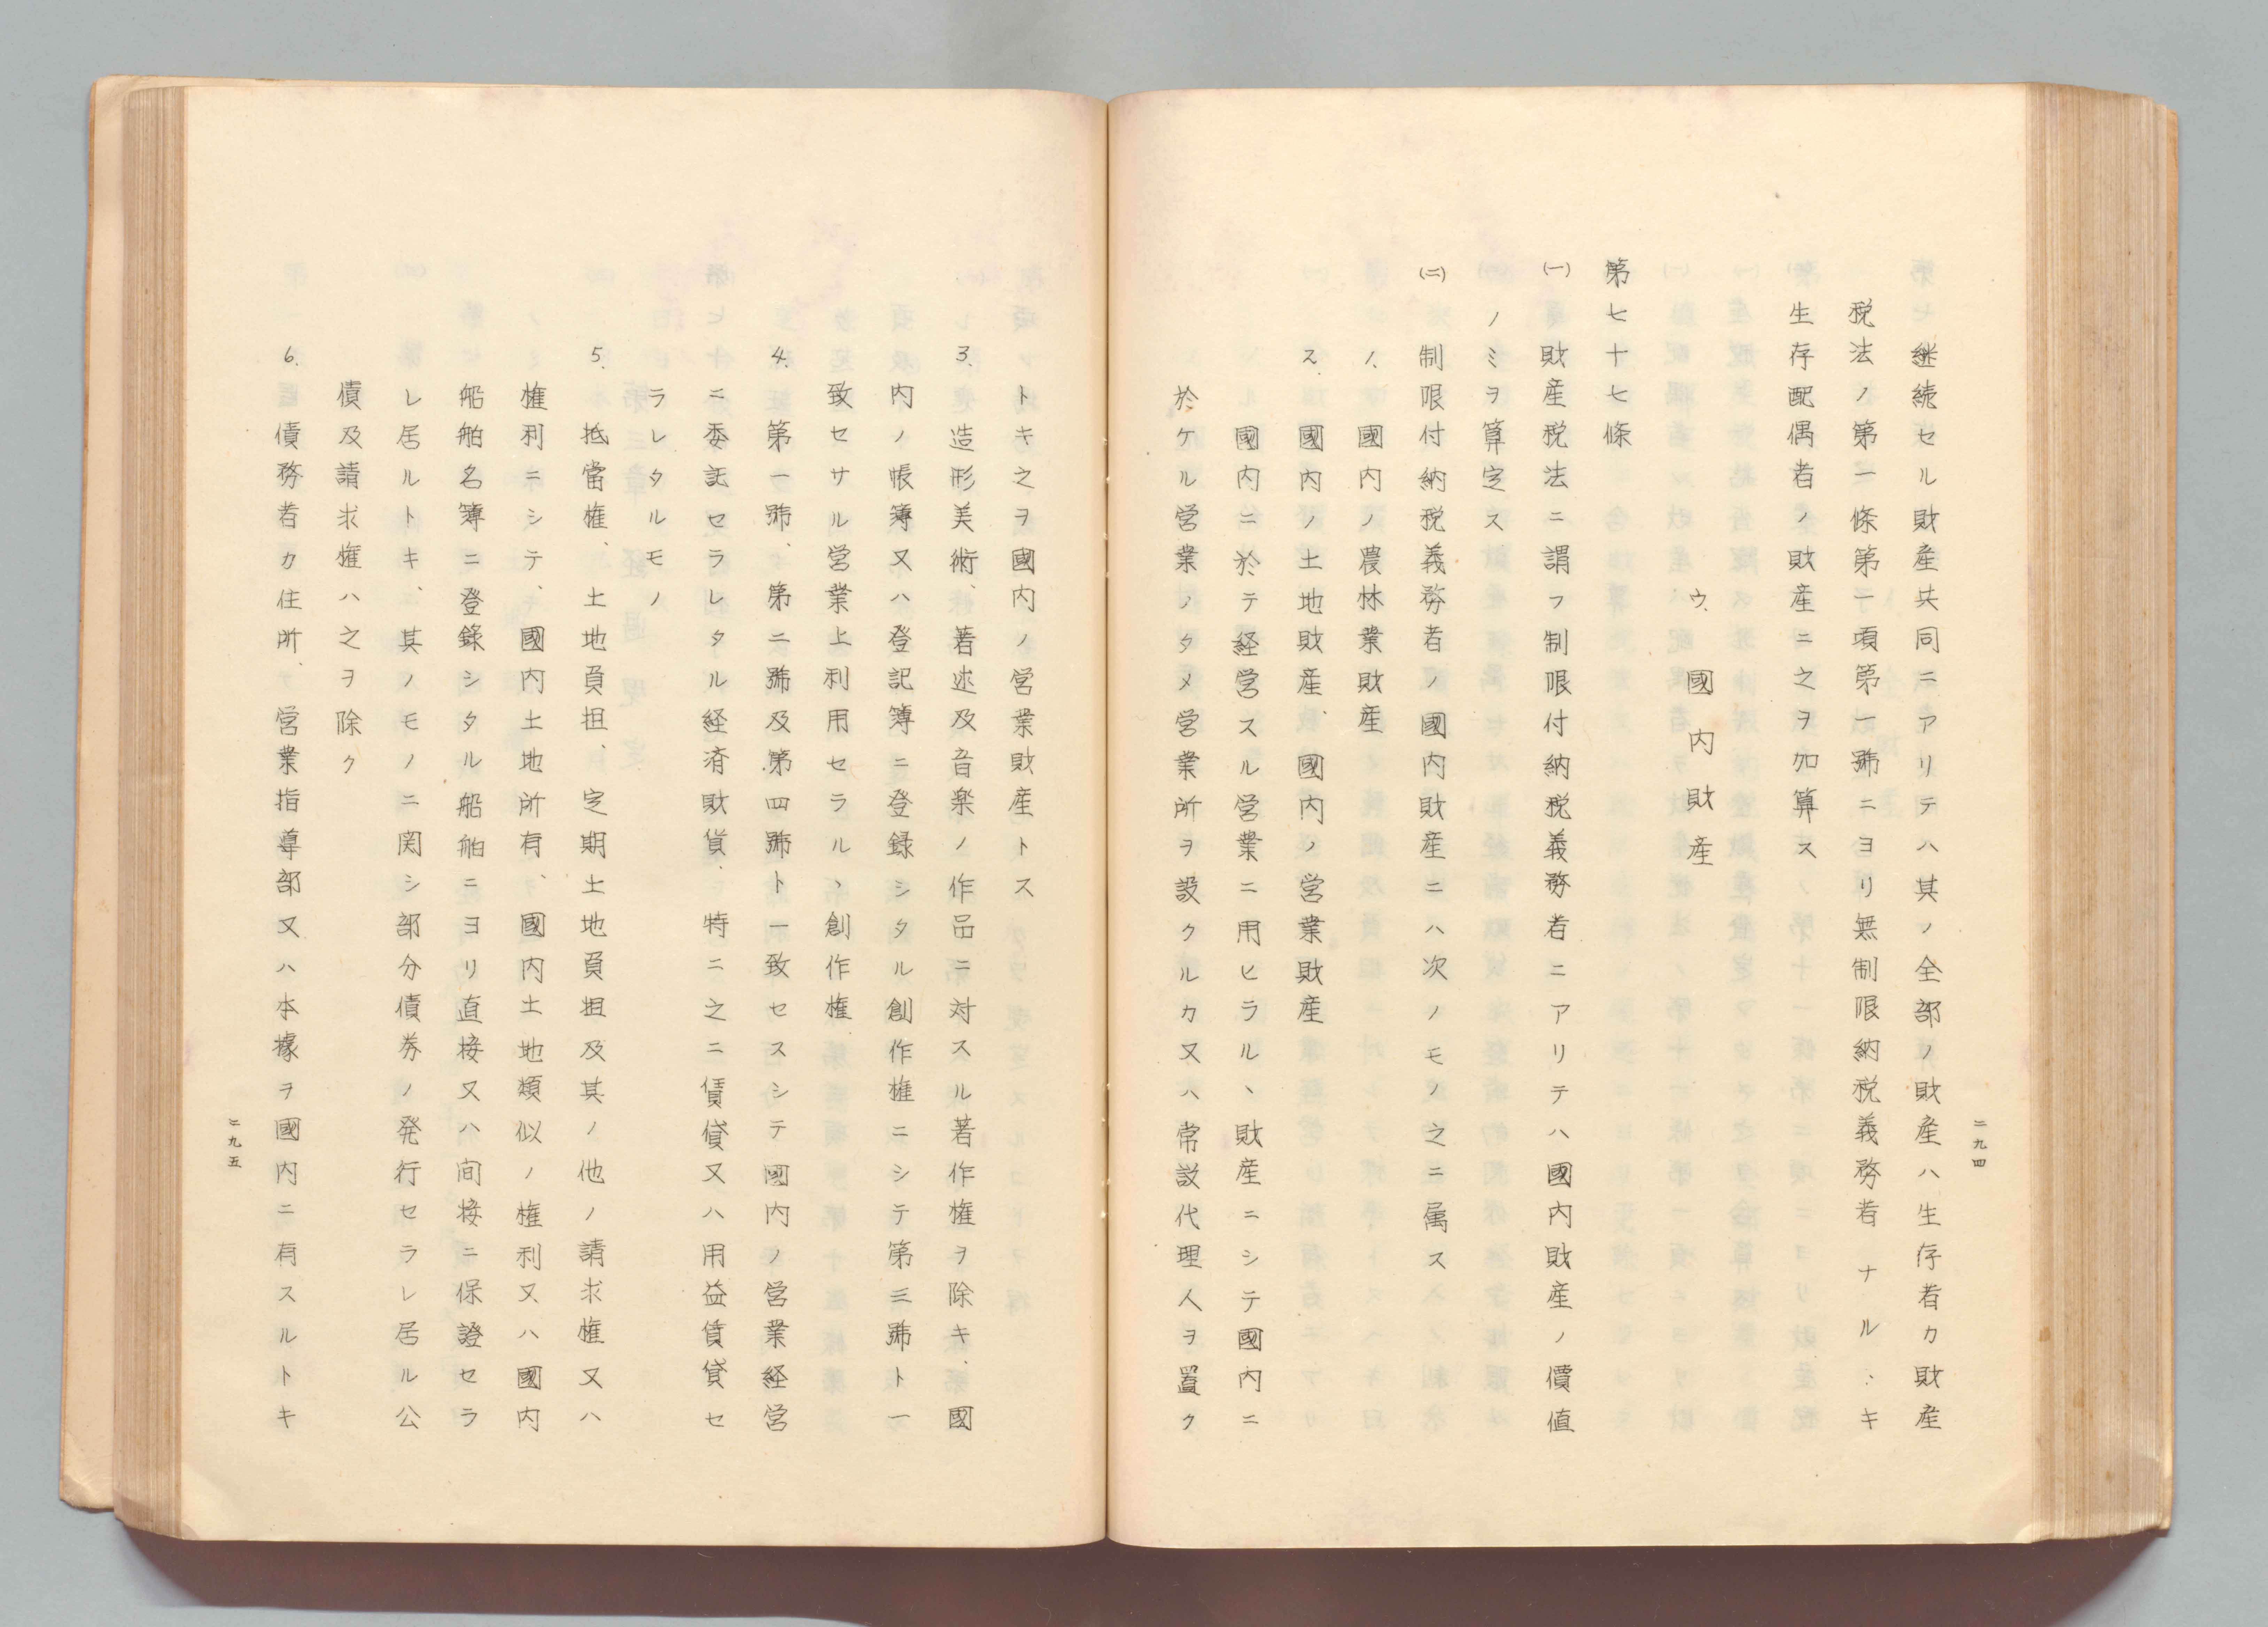 継続セル財産共同ニアリテハ其ノ全部ノ財産ハ生存者カ財産
税法ノ第一條第一項第一號ニヨリ無制限納税義務者ナルトキ
生存配偶者ノ財産ニ之ヲ加算ス
ウ、國内財産
第七十七條
(一)財産税法ニ謂フ制限付納税義務者ニアリテハ國内財産ノ價値
ノミヲ算定ス
(二)制限付納税義務者ノ國内財産ニハ次ノモノ之ニ属ス
1、國内ノ農林業財産
2、國内ノ土地財産、國内ノ営業財産
國内ニ於テ経営スル営業ニ用ヒラルヽ財産ニシテ國内ニ
於ケル営業ノタメ営業所ヲ設クルカ又ハ常設代理人ヲ置ク
二九四
トキ之ヲ國内ノ営業財産トス
3.造形美術、著述及音楽ノ作品ニ対スル著作権ヲ除キ、國
内ノ帳簿又ハ登記簿ニ登録シタル創作権ニシテ第三號ト一
致セサル営業上利用セラルヽ創作権
4.第一號、第二號及第四號ト一致セスシテ國内ノ営業経営
ニ委託セラレタル経済財貨、特ニ之ニ賃貸又ハ用益賃貸セ
ラレタルモノ
5.抵當権、土地負担、定期土地負担及其ノ他ノ請求権又ハ
権利ニシテ、國内土地所有、國内土地類似ノ権利又ハ國内
船舶名簿ニ登録シタル船舶ニヨリ直接又ハ间接ニ保證セラ
レ居ルトキ、其ノモノニ関シ部分債券ノ発行セラレ居ル公
債及請求権ハ之ヲ除ク
6.債務者カ住所、営業指導部又ハ本據ヲ國内ニ有スルトキ
二九五